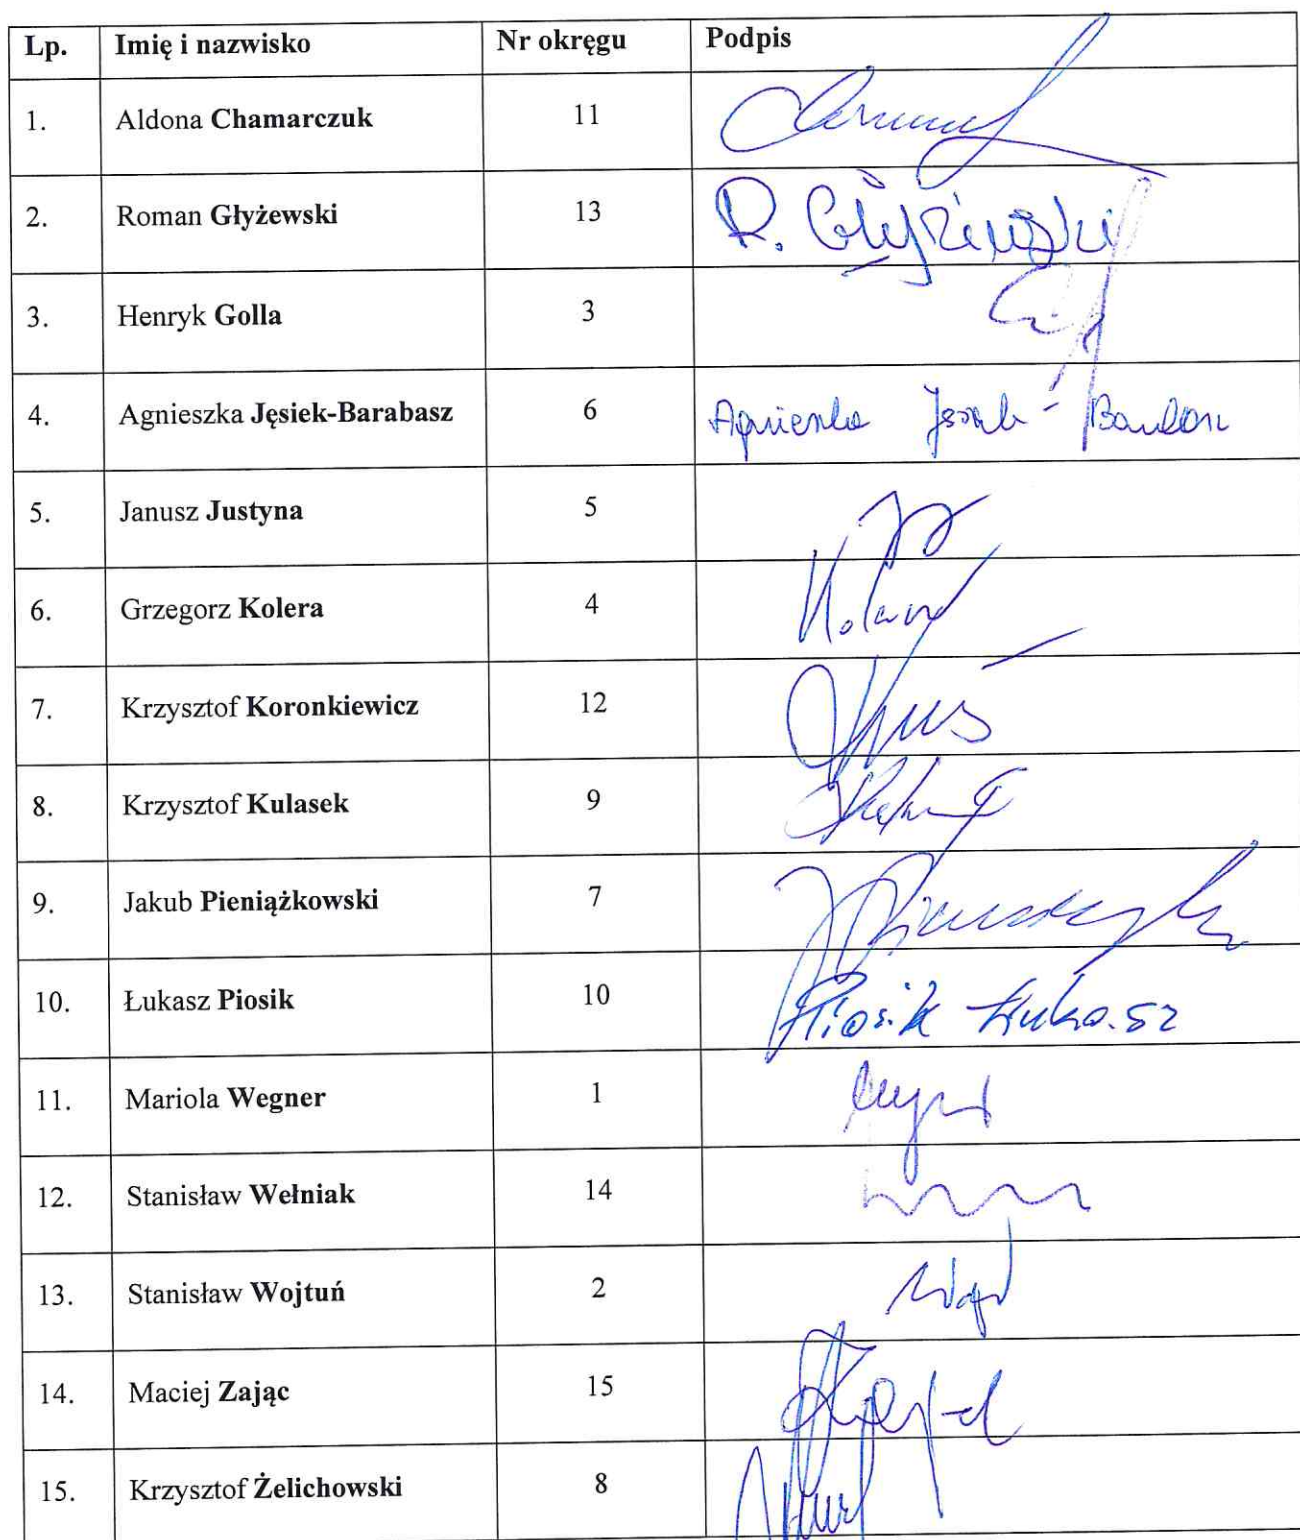 Lp. Imię i nazwisko Nr okręgu Podpis
1. Aldona Chamarczuk 11
2. Roman Głyżewski 13 R.
3. Henryk Golla 3
4. Agnieszka Jęsiek-Barabasz 6 Agnieszka
5. Janusz Justyna 5
6. Grzegorz Kolera 4
7. Krzysztof Koronkiewicz 12
8. Krzysztof Kulasek 9
9. Jakub Pieniążkowski 7
10. Łukasz Piosik 10 Piosik Łukasz
11. Mariola Wegner 1
12. Stanisław Wełniak 14
13. Stanisław Wojtuń 2
14. Maciej Zając 15
15. Krzysztof Żelichowski 8